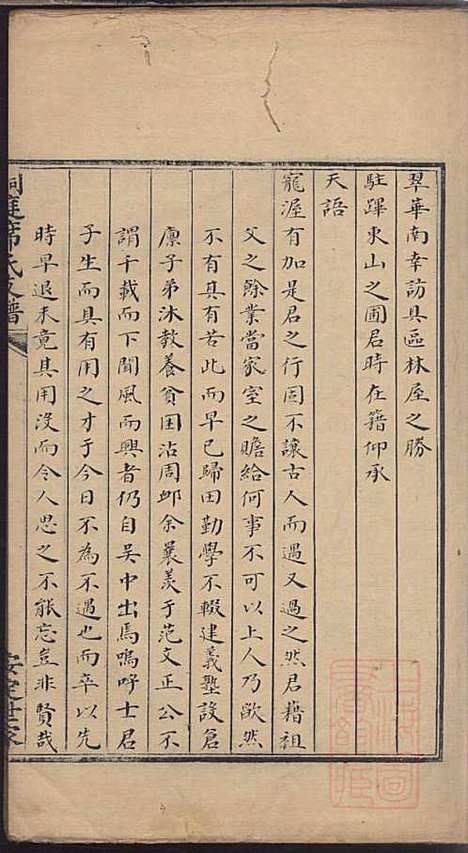 翠華南幸訪具區林屋之勝
駐蹕東山之圃君時在籍仰承
天語
寵渥有加是君之行固不讓古人而遇又過之然君藉祖
父之餘業當家室之贍給何事不可以上人乃欿然
不有具有若此而早已歸田勤學不輟建義塾設倉
廪子弟沐教養貧困沾周卹余曩羡于范文正公不
謂千載而下聞風而興者仍自吳中出焉嗚呼士君
子生而具有用之才于今日不為不遇也而卒以先
時早退未竟其用沒而令人思之不能忘豈非賢哉
洞庭席氏支譜
安定世家